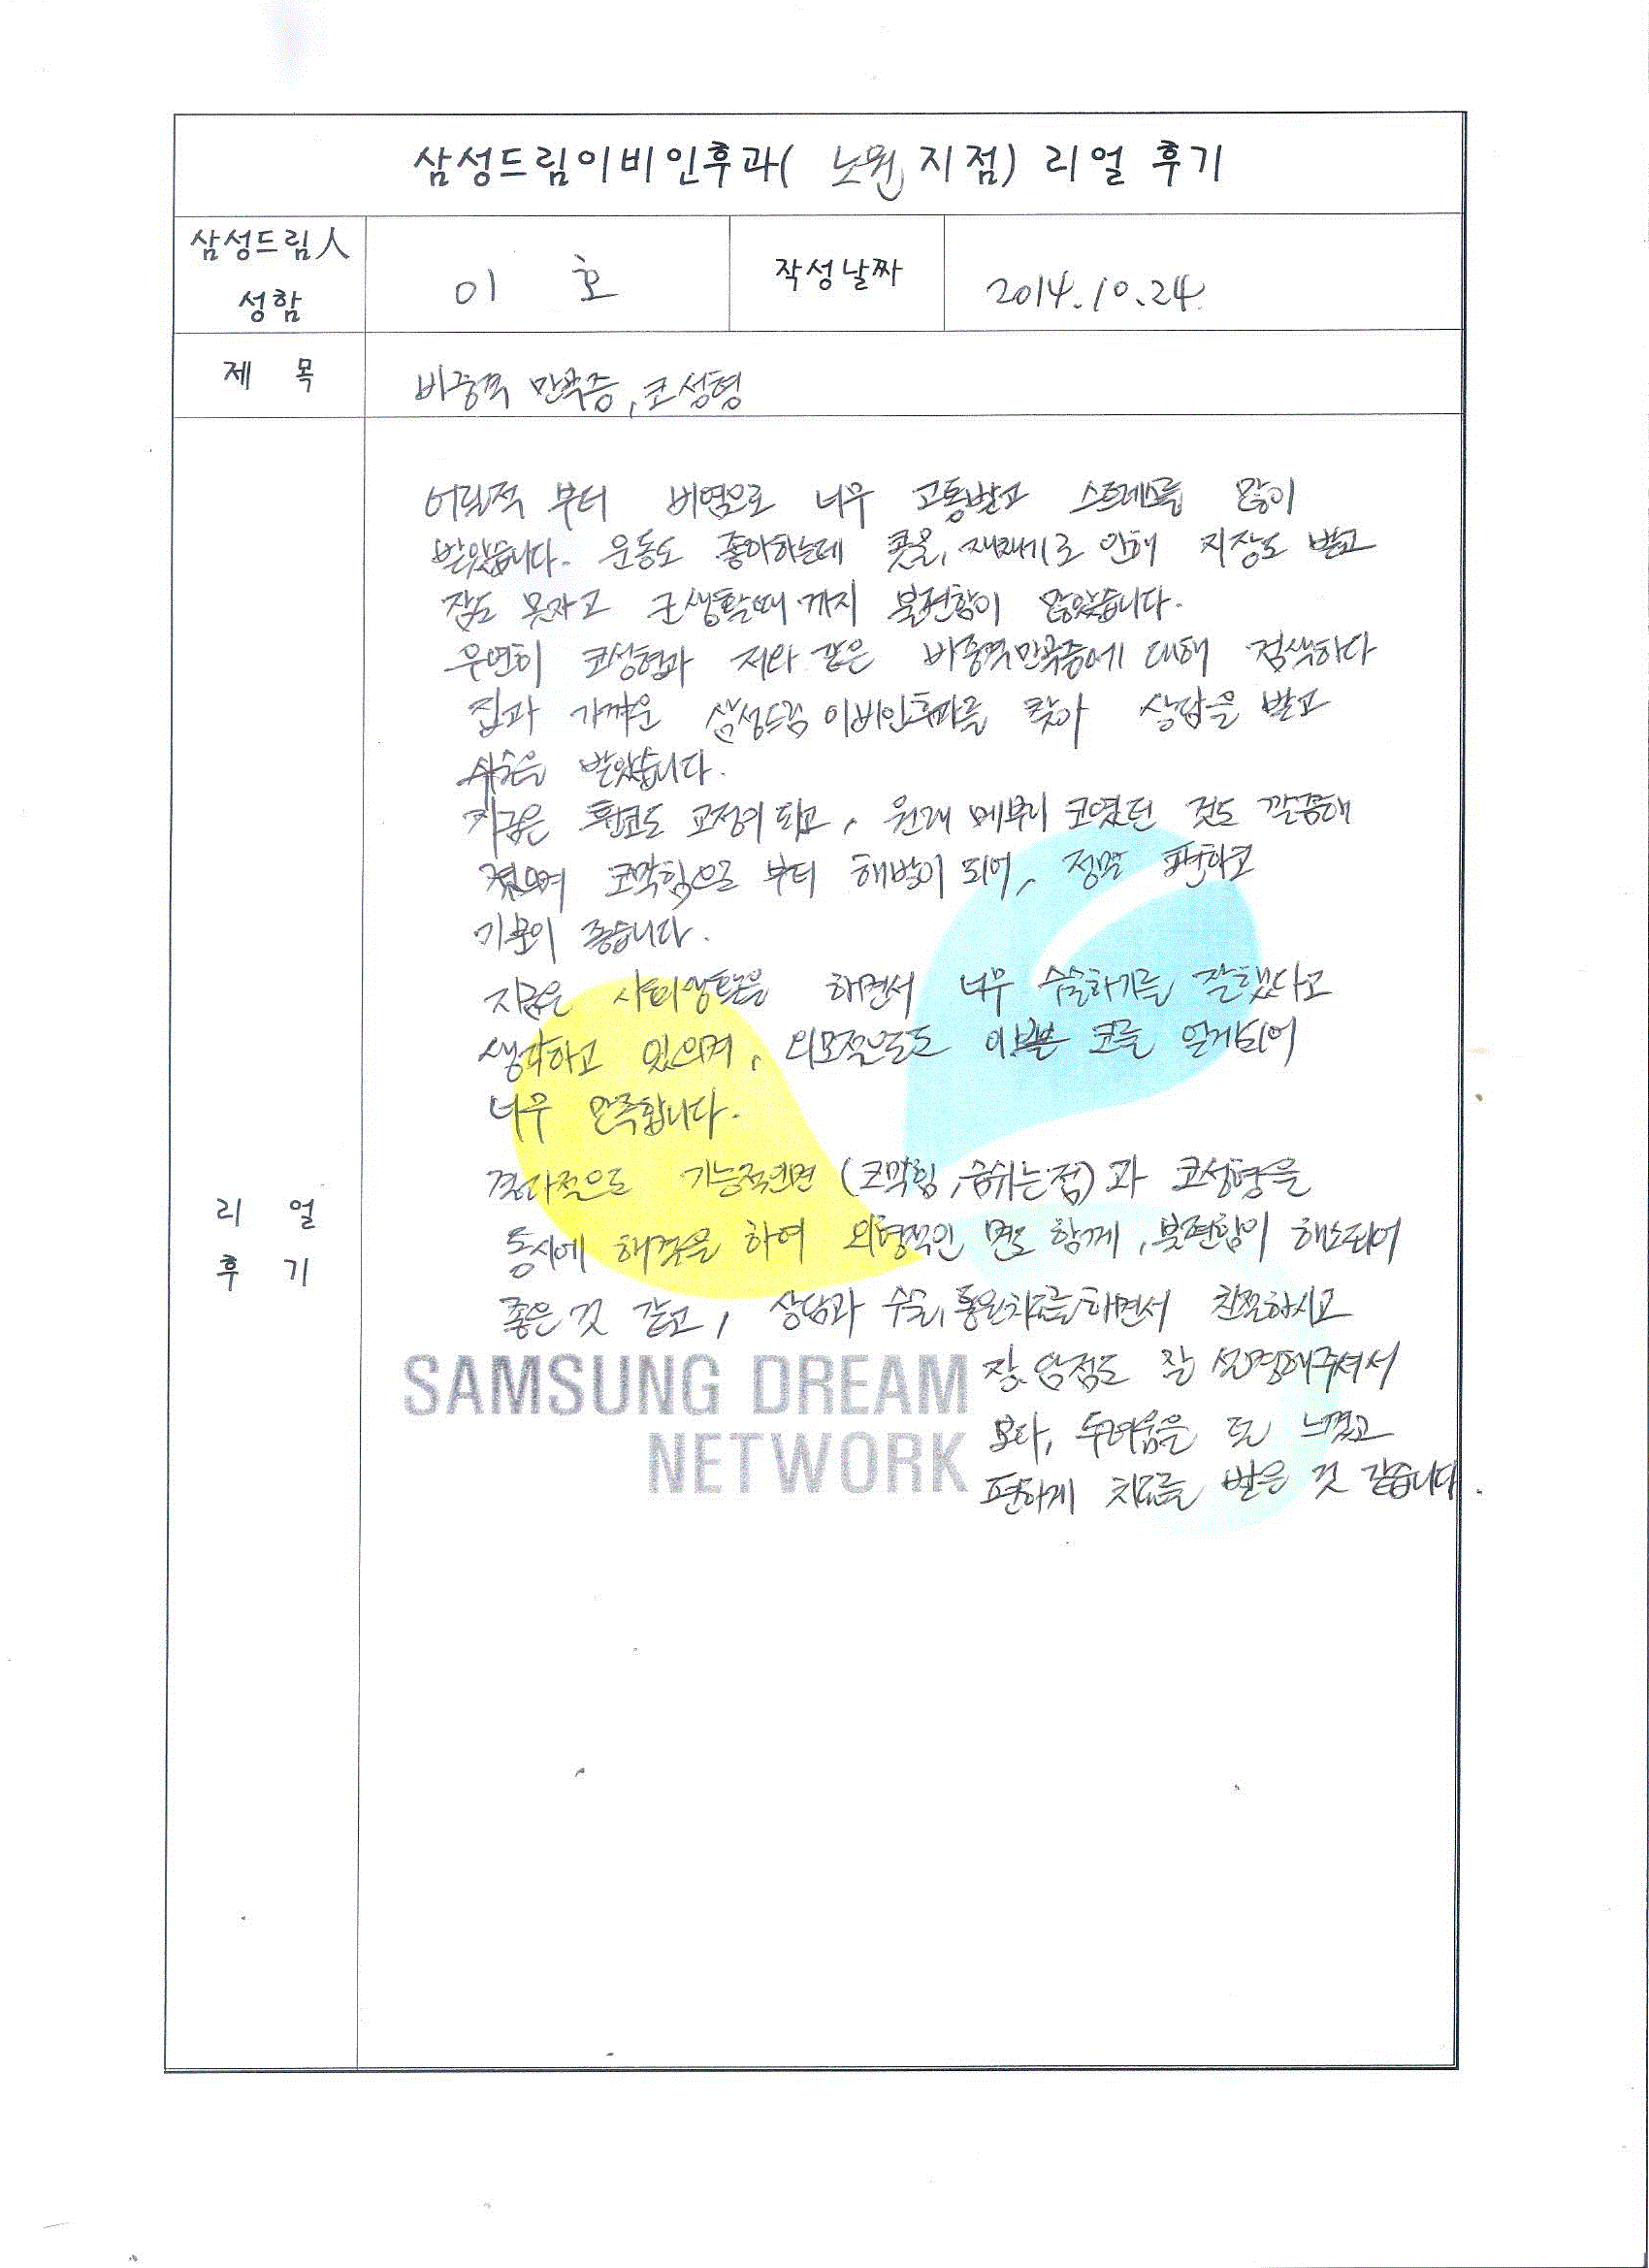 삼성드림이비인후과( 노원 지점) 리얼 후기
삼성드림人
성함
이 호
작성날짜
2014.10.24.
제 목
비중격 만곡증, 코성형
어릴적 부터 비염으로 너무 고통받고 스트레스를 많이
받았습니다. 운동도 좋아하는데 콧물, 재채기로 인해 지장도 받고
잠도 못자고 군생활때 까지 불편함이 많았습니다.
우연히 코성형과 저와 같은 비중격만곡증에 대해 검색하다
집과 가까운 삼성드림 이비인후과를 찾아 상담을 받고
수술을 받았습니다.
지금은 휜코도 교정이 되고, 원래 메부리 코였던 것도 깔끔해
졌으며 코막힘으로 부터 해방이 되어, 정말 편하고
기분이 좋습니다.
지금은 사회생활을 하면서 너무 수술하기를 잘했다고
생각하고 있으며, 외모적으로도 이쁜 코를 얻게되어
너무 만족합니다.
결과적으로 기능적인면 (코막힘, 숨쉬는점)과 코성형을
동시에 해결을 하여 외형적인 면도 함께, 불편함이 해소되어
좋은 것 같고, 상담과 수술, 통원치료를 하면서 친절하시고
장, 단점도 잘 설명해주셔서
보다, 두려움을 덜 느꼈고
편하게 치료를 받은 것 같습니다.
리 얼
후 기
SAMSUNG DREAM
NETWORK